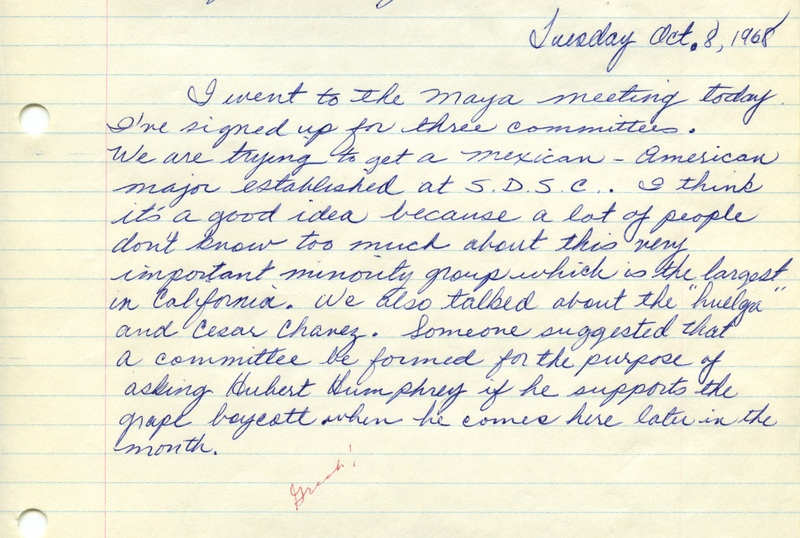 Tuesday Oct. 8, 1968
I went to the Maya meeting today.
I've signed up for three committees.
We are trying to get a Mexican - American
major established at S.D.S.C.. I think
it's a good idea because a lot of people
don't know too much about this very
important minority group which is the largest
in California. We also talked about the "huelga"
and Cesar Chavez. Someone suggested that
a committee be formed for the purpose of
asking Hubert Humphrey if he supports the
grape boycott when he comes here later in the
month.
Great!